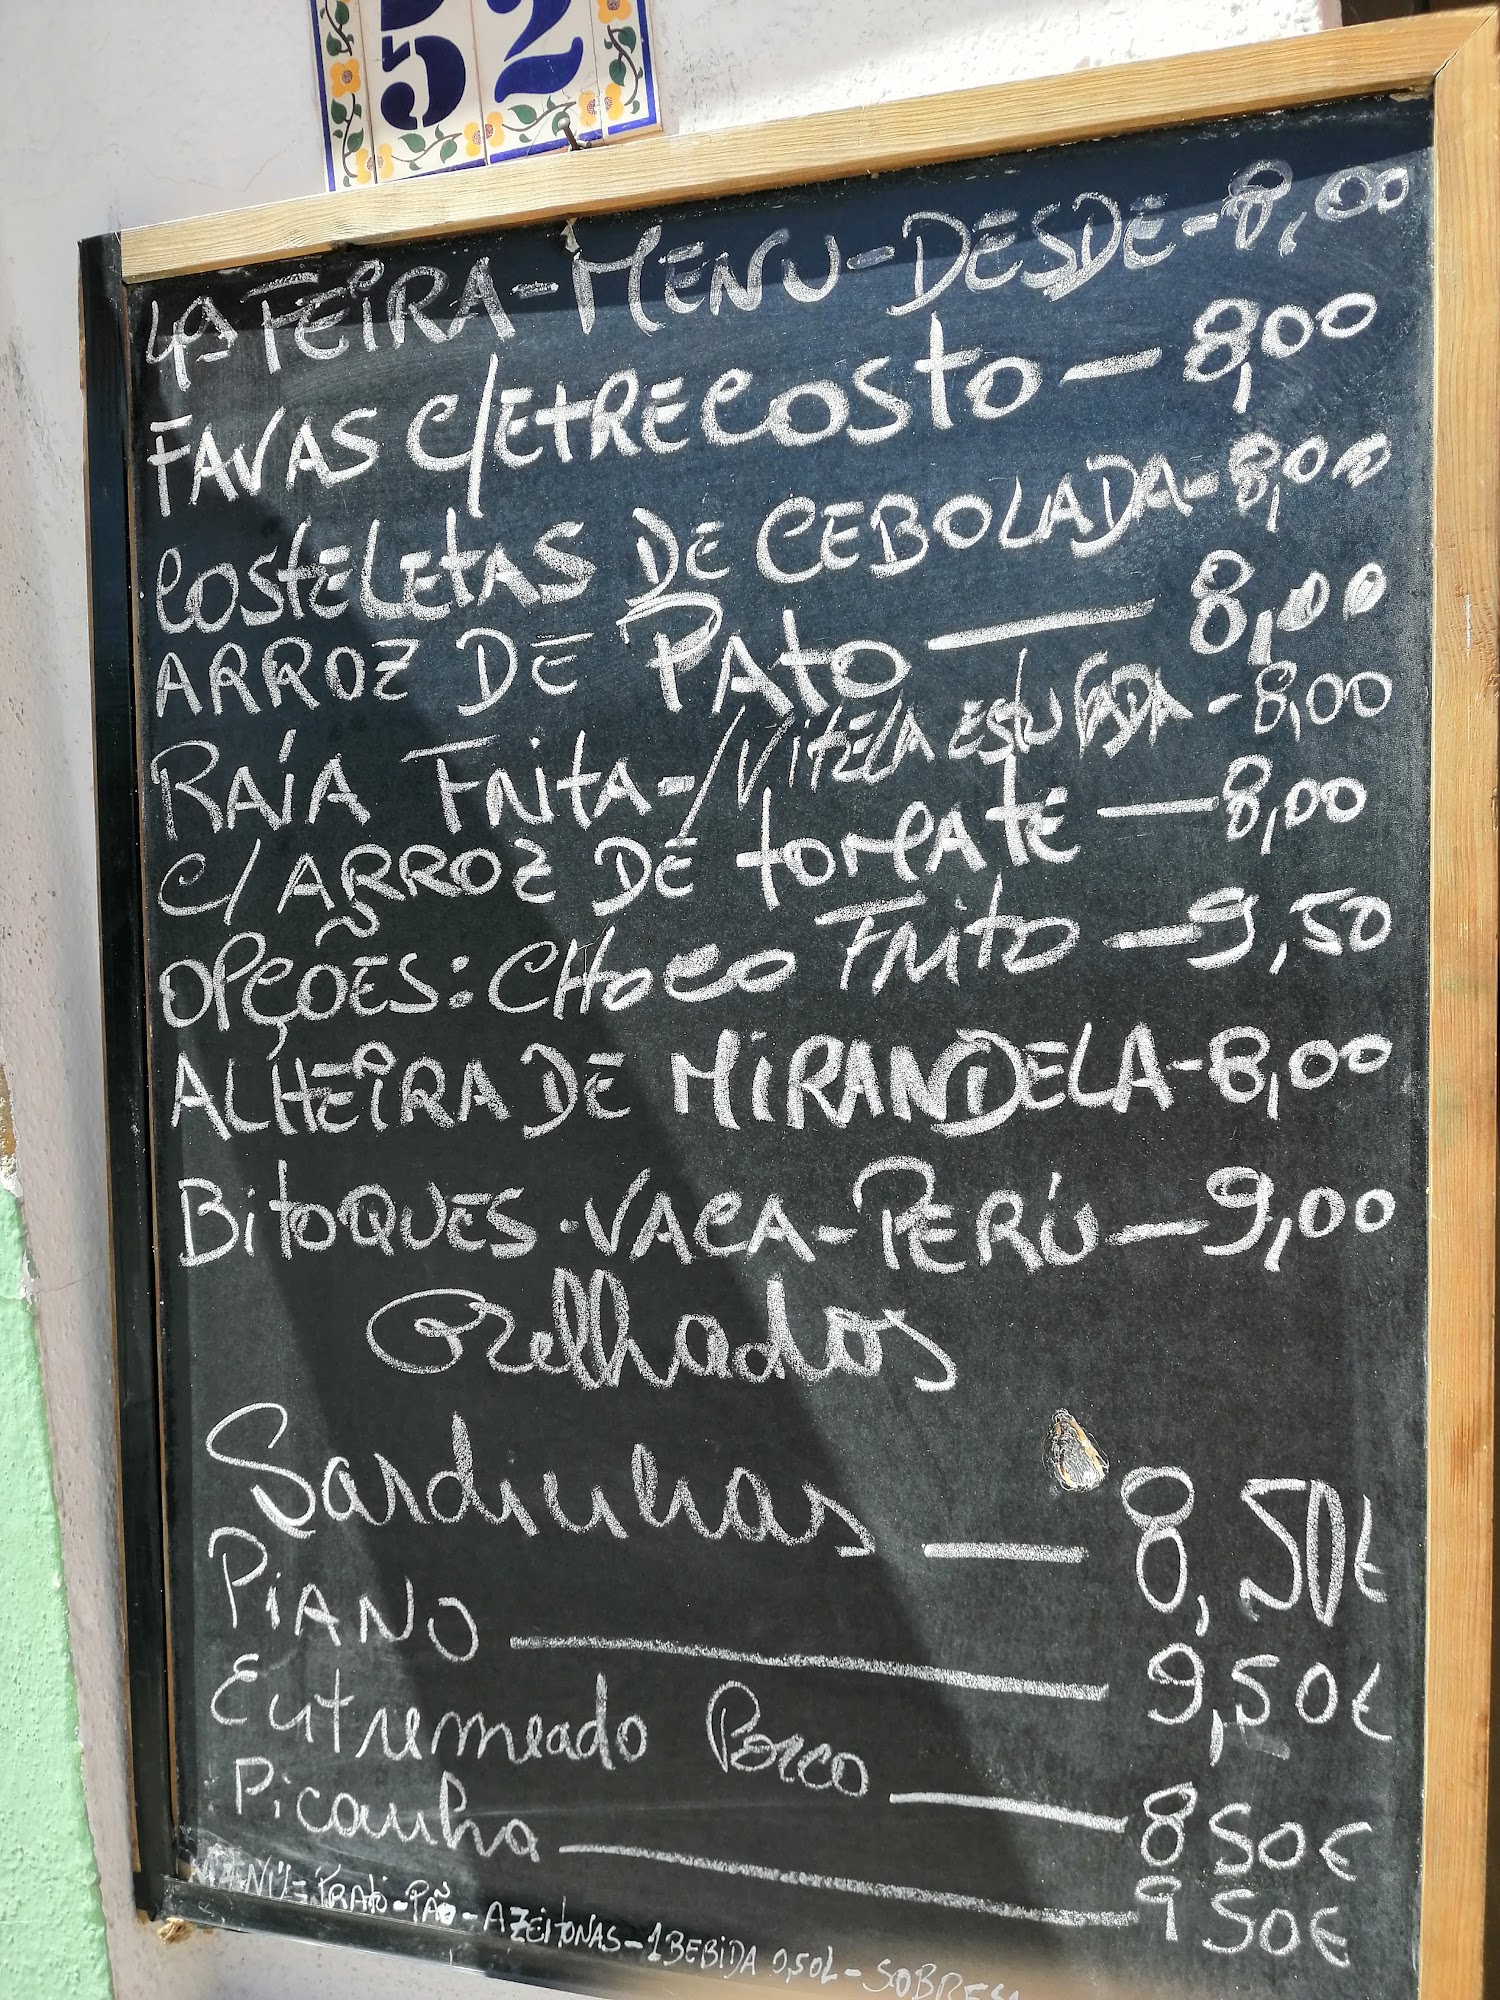 52
4ª FEIRA-MENU-DESDE-8,00
FAVAS C/ETRECOSTO-8,00
COSTELETAS DE CEBOLADA-8,00
ARROZ DE PATO-8,00
RAÍA FRITA-/VITELA ESTUFADA-8,00
C/ARROZ DE TOMATE-8,00
OPÇÕES: CHOCO FRITO-9,50
ALHEIRA DE MIRANDELA-8,00
BITOQUES-VACA-PERÚ-9,00
Grelhados
Sardinhas-8,50€
PIANO-9,50€
Entremeado Porco-8 50€
Picanha-9 50€
PRATO-PÃO-AZEITONAS-1BEBIDA 0,50L-